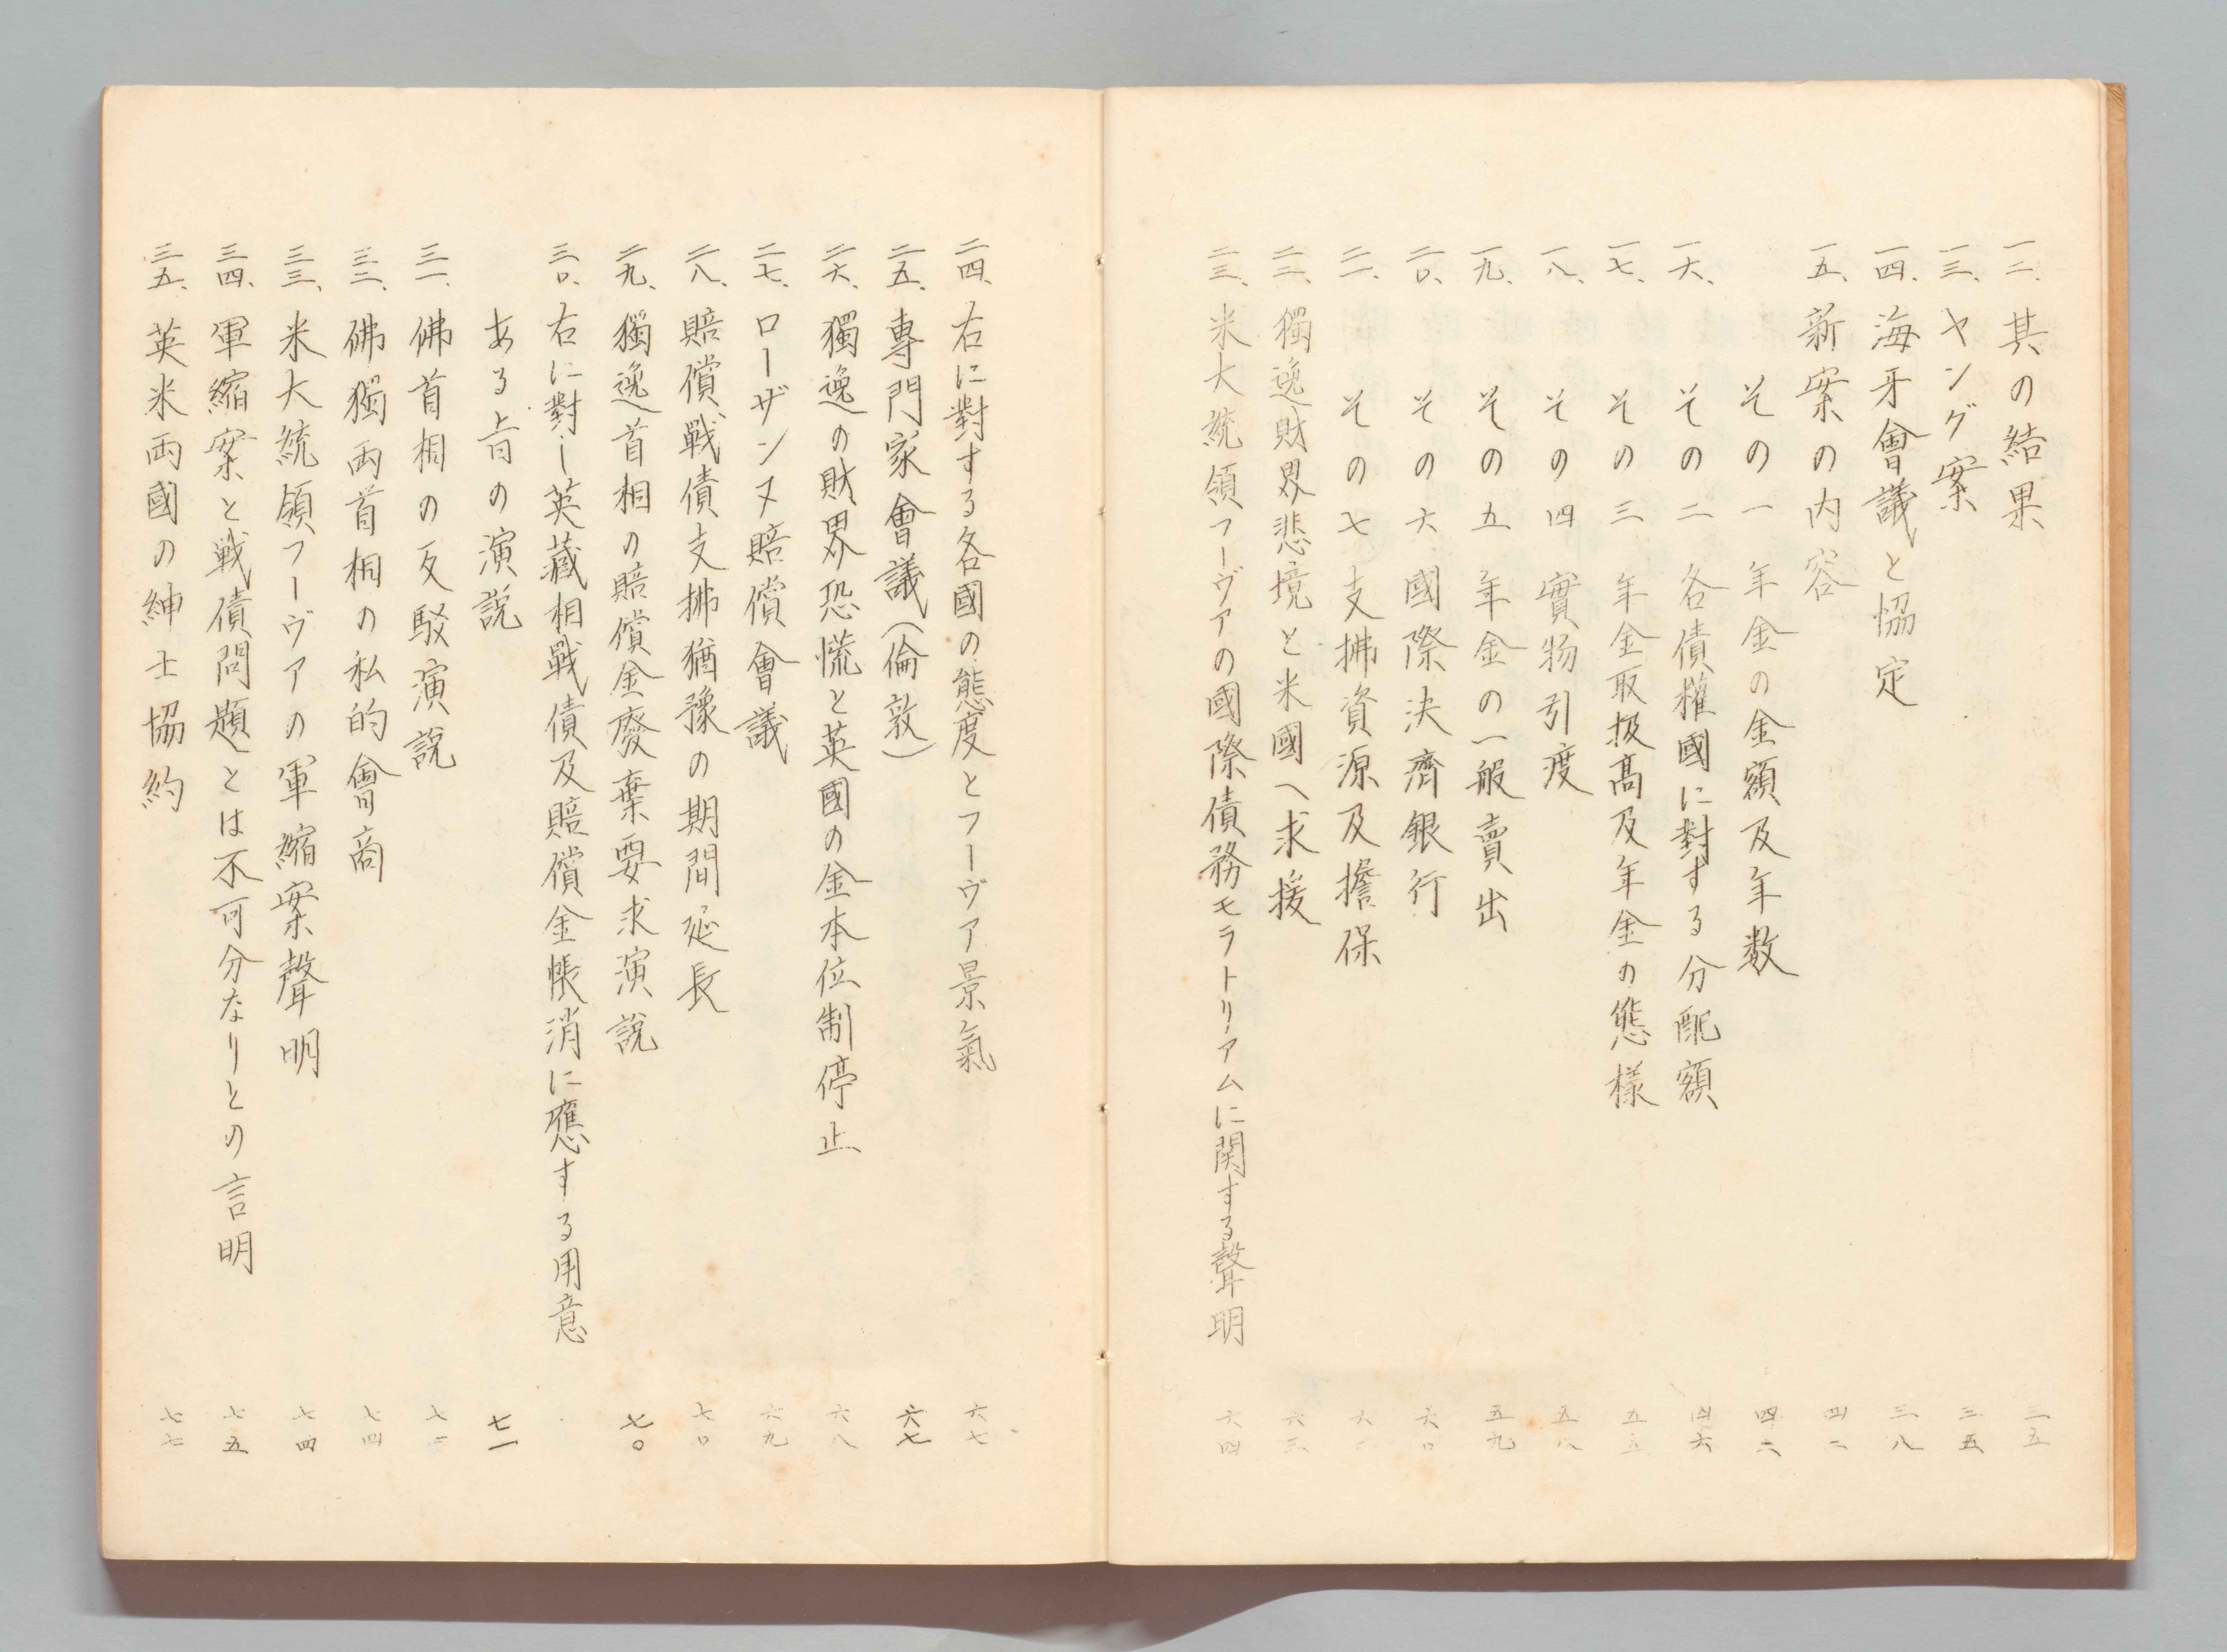 一二、其の結果 三五
一三、ヤング案 三五
一四、海牙會議と協定 三八
一五、新案の内容 四二
その一 年金の金額及年数 四二
一六、その二 各債權國に對する分配額 四六
一七、その三 年金取扱高及年金の態樣 五五
一八、その四 實物引度 五八
一九、その五 年金の一般賣出 五九
二〇、その六 國際決濟銀行 六〇
二一、その七 支拂資源及擔保
二二、獨逸財界悲境と米國へ求援 六三
二三、米大統領フーヴァの國際債務モラトリアムに関する聲明 六四
二四、右に對する各國の態度とフーヴァ景氣 六七
二五、專門家會議(倫敦) 六七
二六、獨逸の財界恐慌と英國の金本位制停止 六八
二七、ローザンヌ賠償會議 六九
二八、賠償戰債支拂猶豫の期間延長 七〇
二九、獨逸首相の賠償金廢棄要求演説 七〇
三〇、右に對し英藏相戰債及賠償金帳消に應する用意
ある旨の演説 七一
三一、佛首相の反駁演説 七二
三二、佛獨両首相の私的會商 七四
三三、米大統領フーヴアの軍縮案聲明 七四
三四、軍縮案と戦債問題とは不可分なりとの言明 七五
三五、英米両國の紳士協約 七七